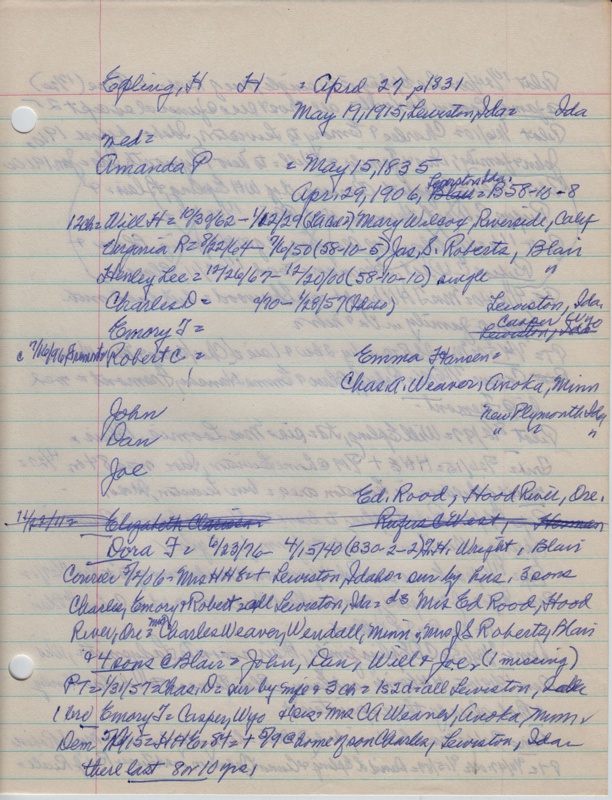 Epling, H H = April 27, 1831
May 19, 1915, Lewiston, Ida = Ida
med =
Amanda P = May 15, 1835
Lewiston Ida.
Apr. 29, 1906, Blair = B58-10-8
12ch = Will H = 10/30/62 - 1/22/29 (Idaho) Mary Wilcox, Riverside, Calif
Virginia R = 8/22/64 - 7/6/50 (58-10-5) Jas. S. Roberts, Blair
Henley Lee = 12/26/67 - 12/20/00 (58-10-10) single "
Charles D = 9/70 - 1/28/57 (Idaho) Lewiston, Ida.
Casper Wyo
Emory F = Lewiston, Ida
c 7/16/96 Fremont Robert C = Emma Hansen =
Chas A. Weaver, Anoka, Minn
John New Plymouth Ida
Dan " " "
Joe
Ed. Rood, Hood River, Ore.
Elizabeth Rufus C West, Herman
Dora F = 6/23/76 - 4/15/40 (B30-2-2) J.H. Wright, Blair
Courier 5/2/06 = Mrs HHE + Lewiston, Idaho = sur by hus, 3 sons
Charles, Emory + Robert = all Lewiston, Ida = ds Mrs Ed Rood, Hood
River, Ore = Mrs Charles Weaver, Wendall, Minn, + Mrs J.S. Roberts, Blair
+ 4 sons C Blair = John, Dan, Will + Joe, (1 missing)
PT = 1/31/57 = Chas. D = sur by wife + 3 ch = 1s 2d = all Lewiston,
1 bro Emory F = Casper, Wyo + sis = Mrs CA Weaver, Anoka, Minn.
Dem = HHE = 84 = + 5/9 @ home of son Charles, Lewiston, Ida =
there last 8 or 10 yrs,